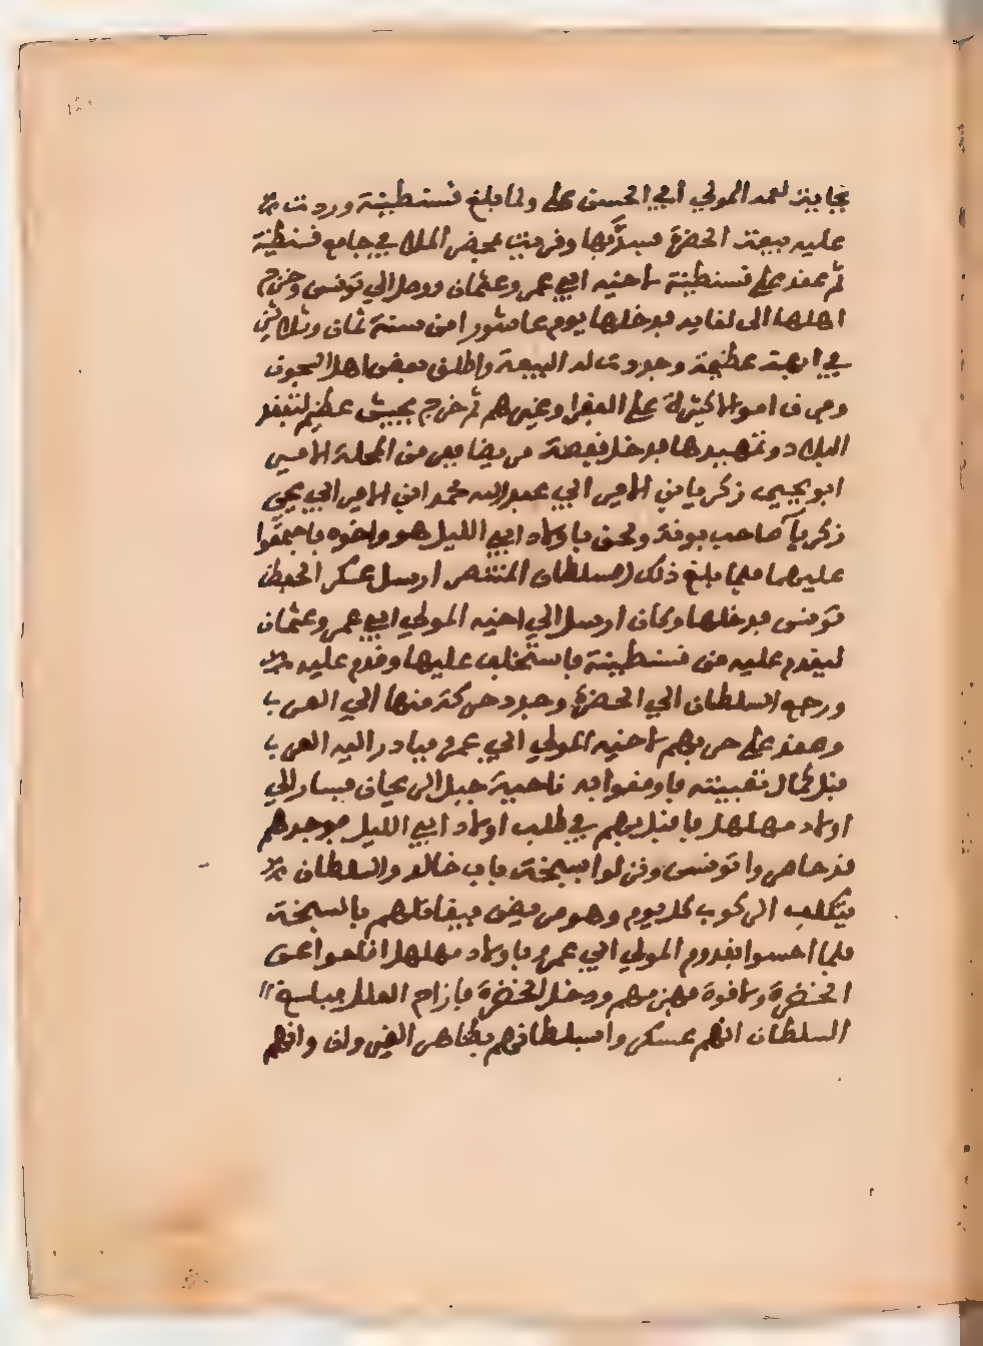 بجاية لعمه المولي ابي الحسن علي ولما بلغ قسنطينة وردت
عليه بيعة الحضرة فسر بها وقريت بمحضر الملا في جامع قسنطينة
ثم عقد علي قسنطينة لاخيه ابي عمرو عثمان ووصل الي تونس وخرج
اهلها الى لقايه فدخلها يوم عاشورا من سنة ثمان وثلاثين
في ابهة عظيمة وجددت له البيعة واطلق بعض اهل السجون
وفرق اموالا كثيرة علي الفقرا وغيرهم ثم خرج بجيش عظيم لتفقد
البلاد وتمهيدها فدخل قفصة مريضا ففر من المحلة الامير
ابو يحيى زكريا بن الامير ابي عبد الله محمد ابن الامير ابي يحي
زكريآ صاحب بونة ولحق باولاد ابي الليل هو واخوه فاجتمعوا
عليهما فلما بلغ ذلك السلطان المنتصر ارسل عسكر الحفظ
تونس فدخلها وكان ارسل الي اخيه المولي ابي عمرو عثمان
ليقدم عليه من قسنطينة فاستخلف عليها وقدم عليه
ورجع السلطان الي الحضرة وجدد حركة منها الي العرب
وعقد علي حربهم لاخيه المولي ابي عمرو فبادر اليه العرب
قبل كمال تعبيته فاوقعوا به ناحية جبل الريحان فسار الي
اولاد مهلهل فاقبل بهم في طلب اولاد ابي الليل فوجدهم
قد حاصروا تونس ونزلوا بسبخة باب خالد والسلطان
يتكلف الركوب كل يوم وهو مريض فيقاتلهم بالسبخة
فلما احسوا بقدوم المولي ابي عمرو باولاد مهلهل اقلعوا عن
الحضرة ولاقوه فهزمهم ودخل الحضرة
السلطان انهم عسكروا بسلطانهم بظاهر القيروان وانهم